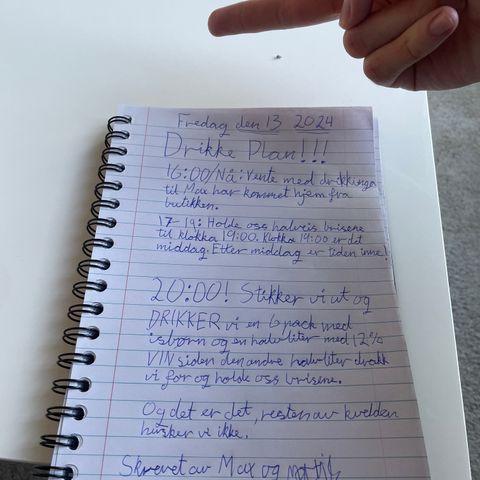 Fredag den 13 2024
Drikke Plan!!!
16:00/Nå: Vente med drikkinga
til Max har kommet hjem fra
butikken.
17-19: Holde oss halveis brisene
til klokka 19:00. Klokka 19:00 er det
middag. Etter middag er tiden inne!
20:00! Stikker vi ut og
DRIKKER vi en 6 pack med
isbjørn og en halv liter med 12%
VIN siden den andre halv liter drakk
vi for og holde oss brisene.
Og det er det, resten av kvelden
husker vi ikke.
Skrevet av Max og